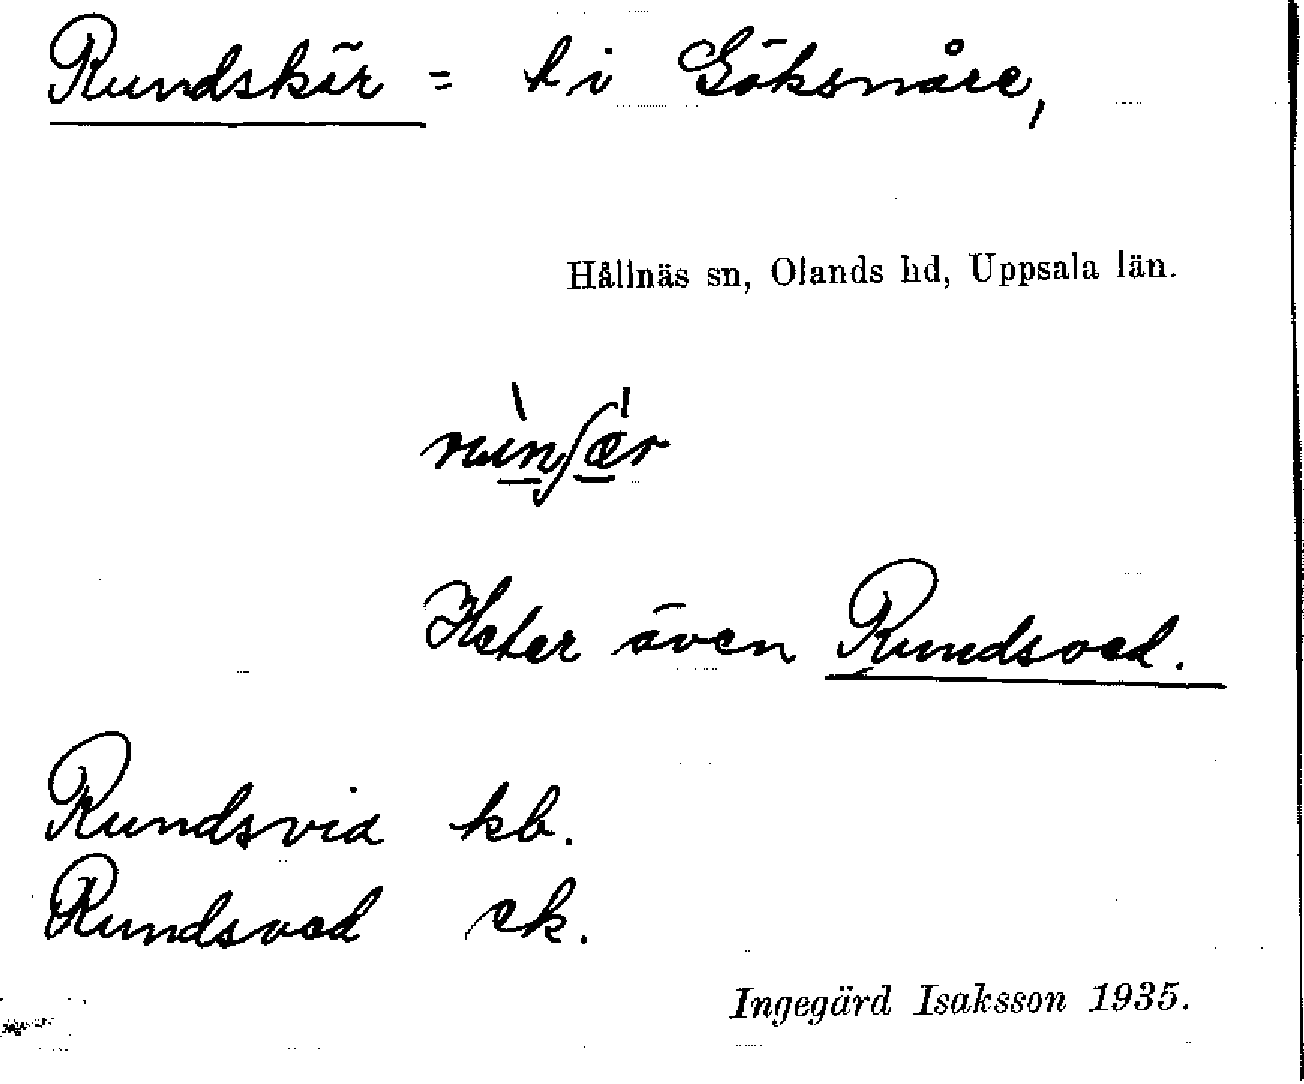 Rundskär = t i Göksnåre,
Hållnäs sn, Olands hd, Uppsala län.
Heter även Rundsved.
Rundsvid kb.
Rundsved ek.
Ingegärd Isaksson 1935.